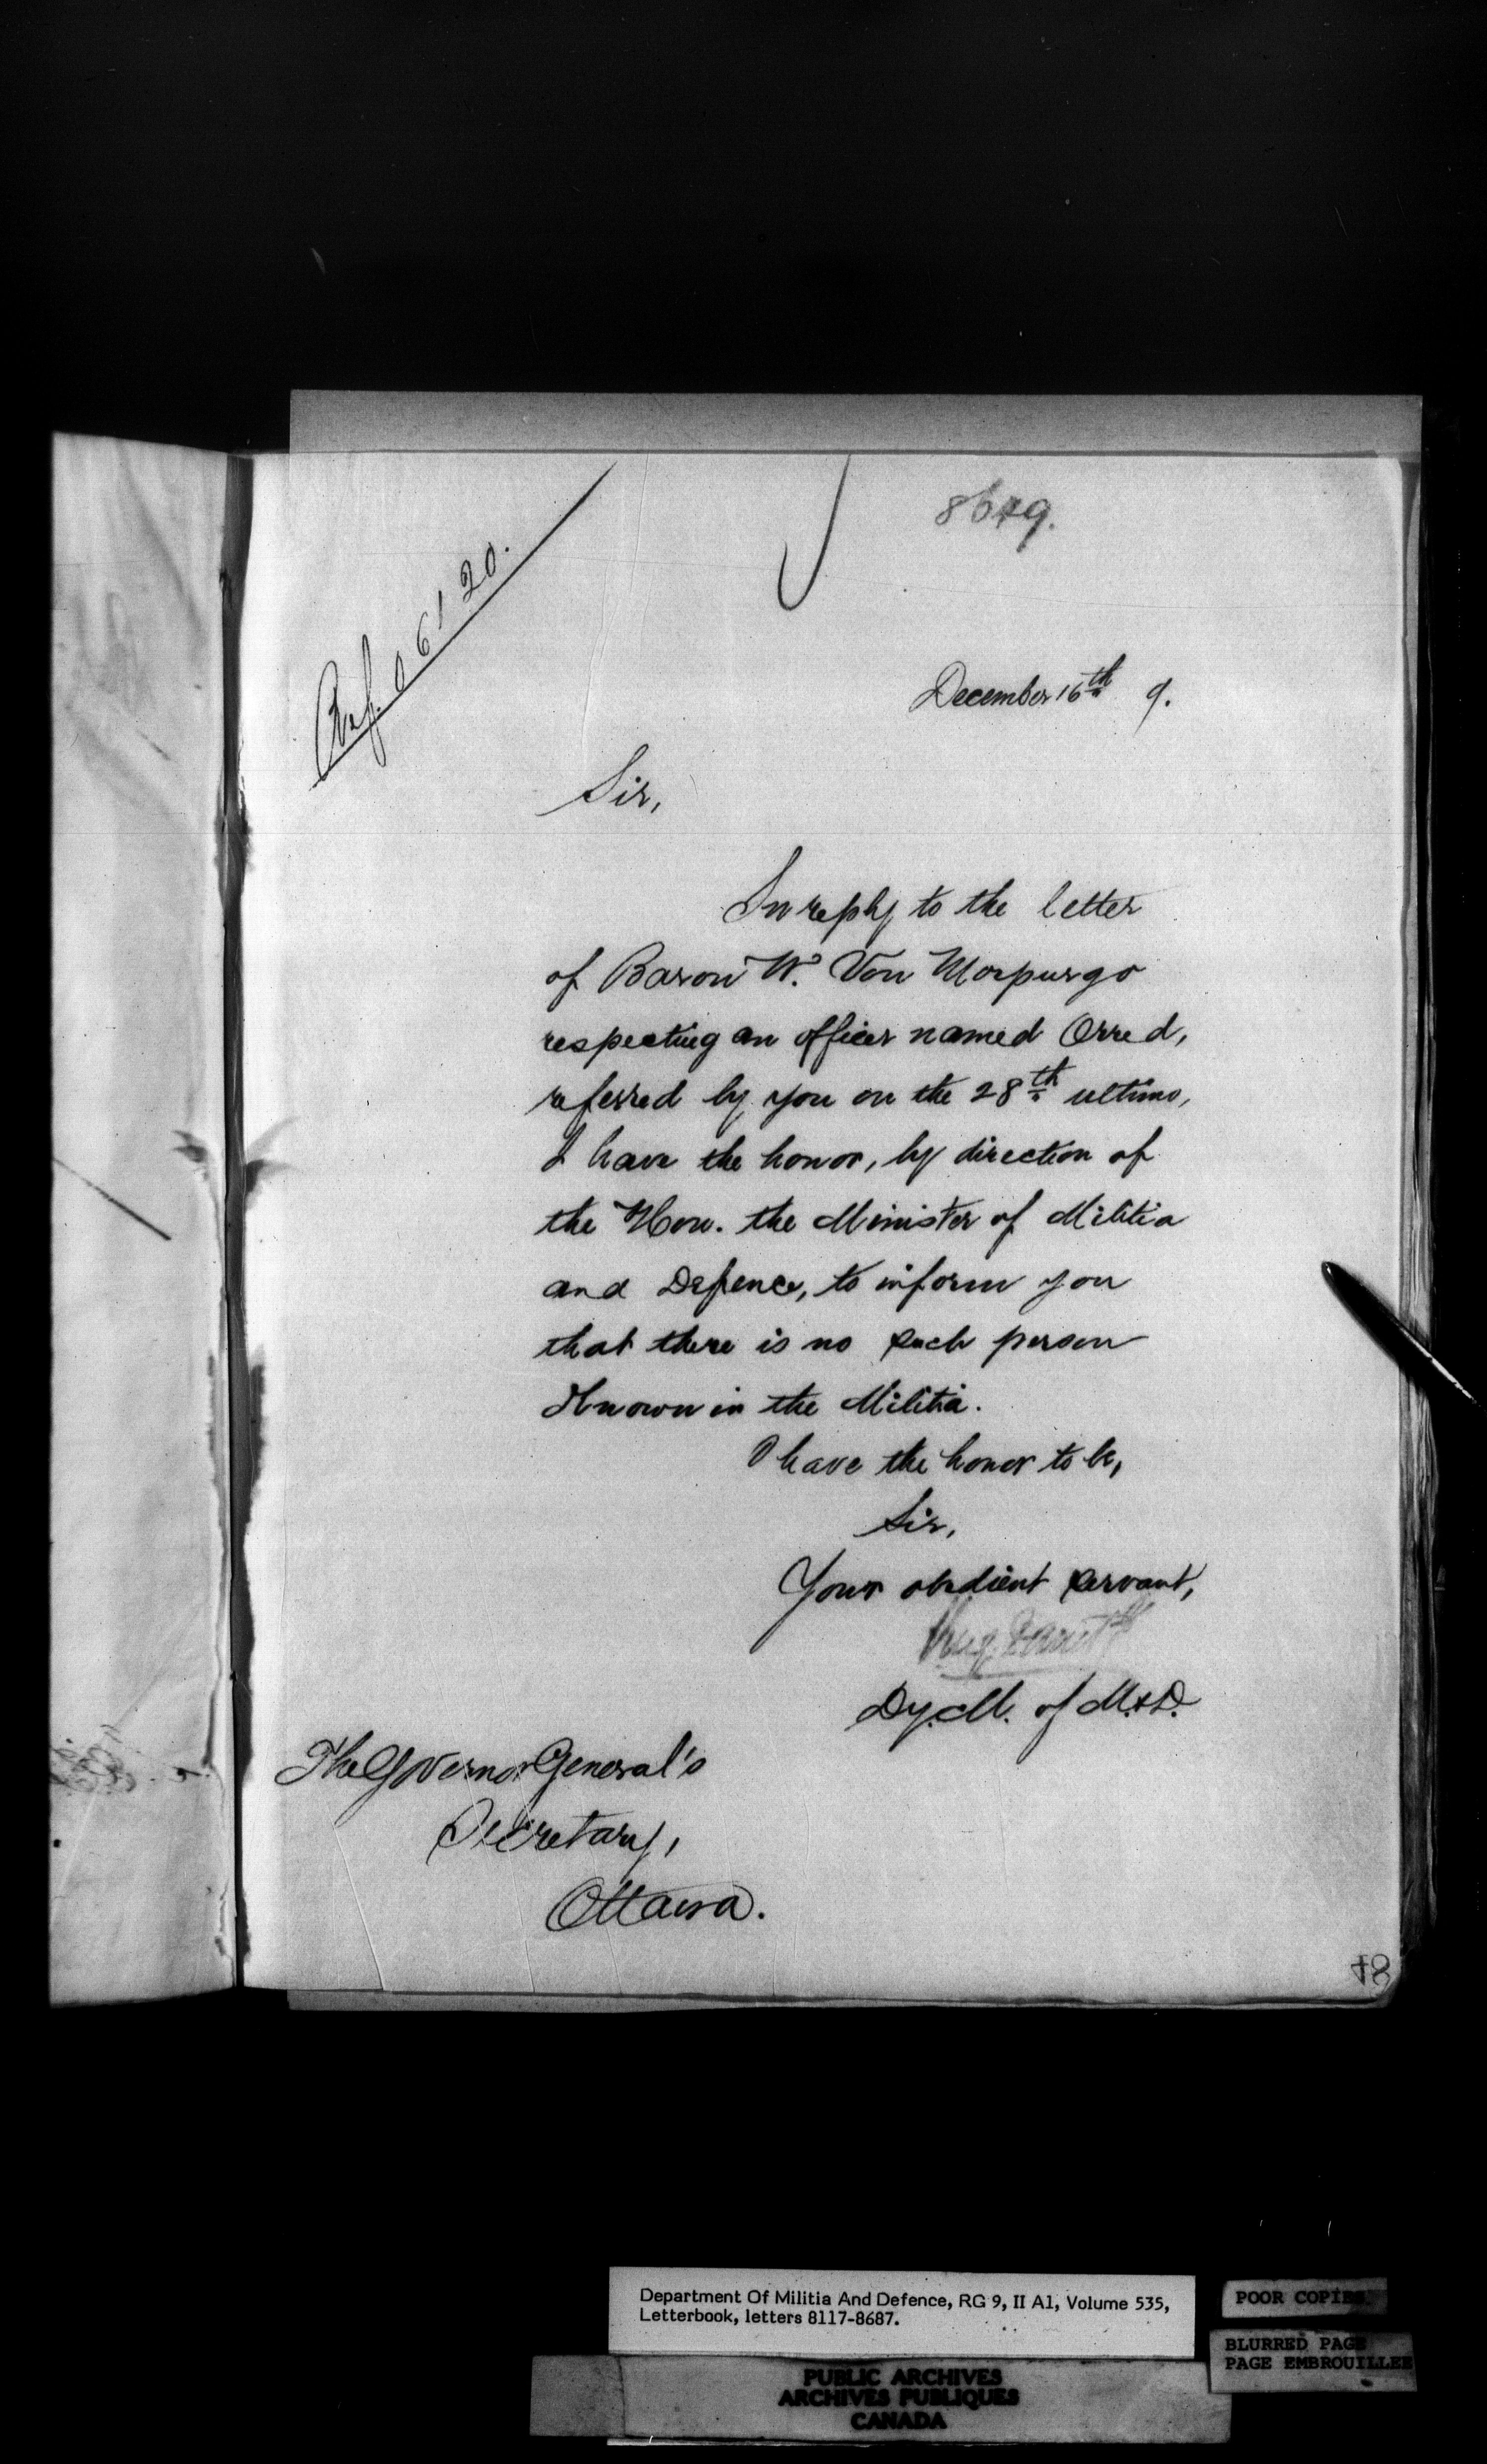 8649.
Ref. 06120.
December 16th 9.
Sir,
In reply to the letter
of Baron W. Von Morpurgo
respecting an officer named Orred,
referred by you on the 28th ultimo,
I have the honor, by direction of
the Hon. the Minister of Militia
and Defence, to inform you
that there is no such person
known in the Militia.
I have the honor to be,
Sir,
Your obedient servant,
Dy. M. of M. & D.
The Governor General's
Secretary,
Ottawa.
48
Department Of Militia And Defence, RG 9, II A1, Volume 535,
Letterbook, letters 8117-8687.
POOR COPIES
BLURRED PAGE
PAGE EMBROUILLEE
PUBLIC ARCHIVES
ARCHIVES PUBLIQUES
CANADA